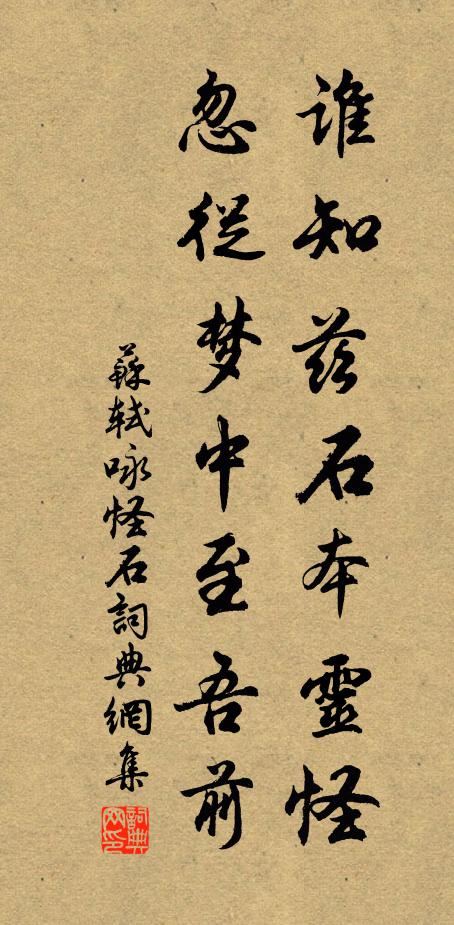 誰知兹石本靈怪
忽從梦中至吾前
蘇軾咏怪石詞典網集
詞典
网印